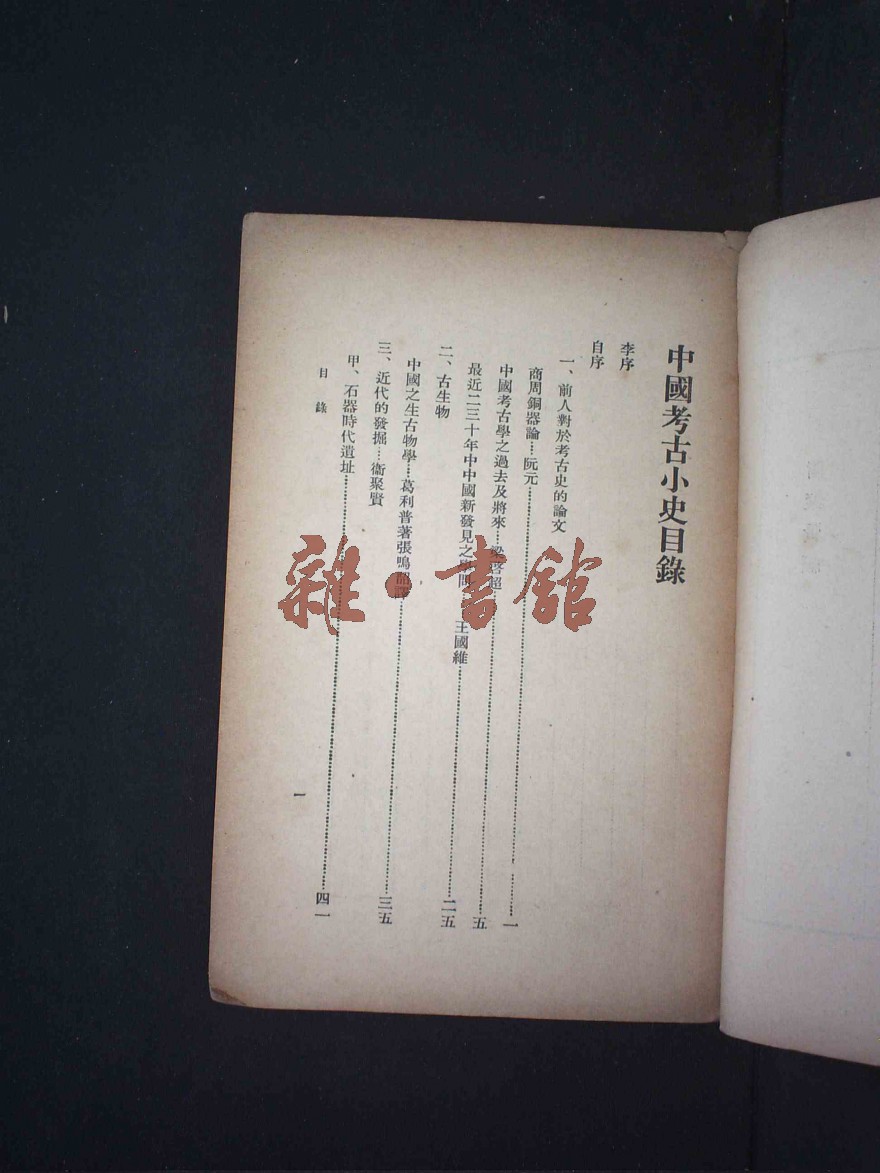 中國考古小史目錄
李序
自序
一、前人對於考古史的論文
商周銅器論……阮元……一
中國考古學之過去及將來……梁啓超……五
最近二三十年中中國新發見之學問……王國維……二五
二、古生物
中國之生古物學……葛利普著張鳴韶譯……三五
三、近代的發掘……衞聚賢
甲、石器時代遺址……四一
目錄
一
雜·書館